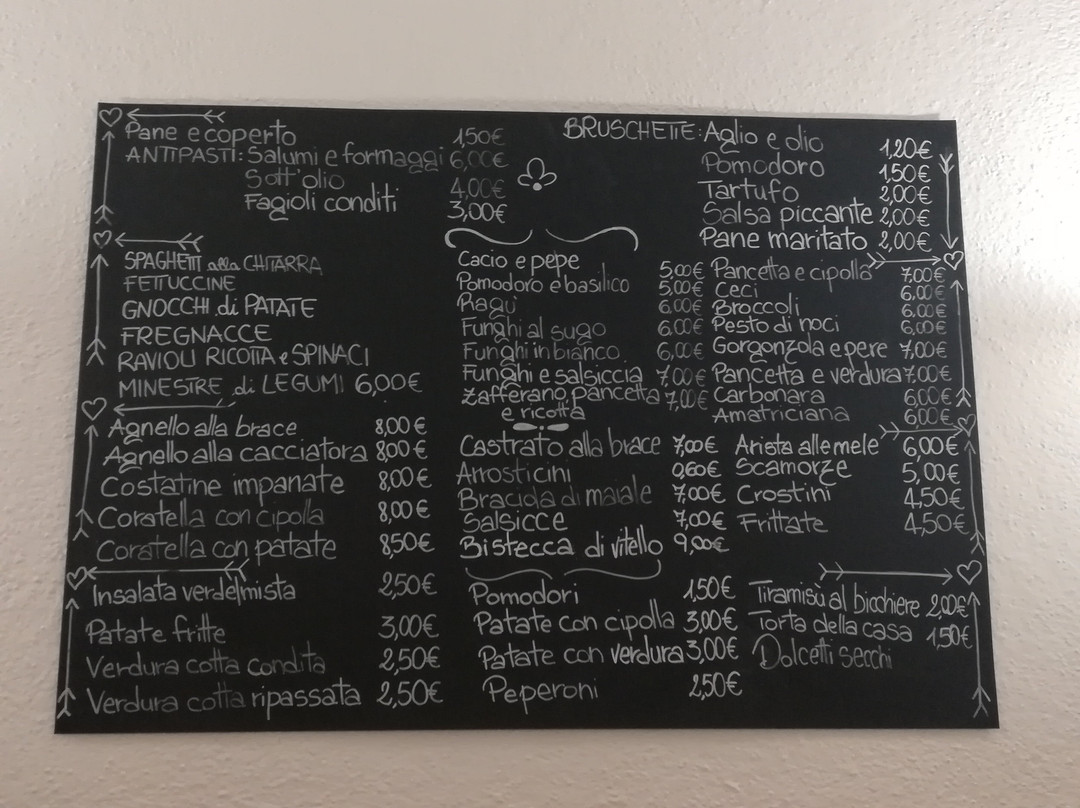 Pane e coperto 1,50€
ANTIPASTI: Salumi e formaggi 6,00€
Sott'olio 4,00€
Fagioli conditi 3,00€
BRUSCHETTE: Aglio e olio 1,20€
Pomodoro 1,50€
Tartufo 2,00€
Salsa piccante 2,00€
Pane maritato 2,00€
SPAGHETTI alla CHITARRA
FETTUCCINE
GNOCCHI di PATATE
FREGNACCE
RAVIOLI RICOTTA e SPINACI
MINESTRE di LEGUMI 6,00€
Cacio e pepe 5,00€
Pomodoro e basilico 5,00€
Ragù 6,00€
Funghi al sugo 6,00€
Funghi in bianco 6,00€
Funghi e salsiccia 7,00€
Zafferano, pancetta 7,00€
e ricotta
Pancetta e cipolla 7,00€
Ceci 6,00€
Broccoli 6,00€
Pesto di noci 6,00€
Gorgonzola e pere 7,00€
Pancetta e verdura 7,00€
Carbonara 6,00€
Amatriciana 6,00€
Agnello alla brace 8,00€
Agnello alla cacciatora 8,00€
Costatine impanate 8,00€
Coratella con cipolla 8,00€
Coratella con patate 8,50€
Castrato alla brace 7,00€
Arrosticini 0,60€
Braciola di maiale 7,00€
Salsicce 7,00€
Bistecca di vitello 9,00€
Arista alle mele 6,00€
Scamorze 5,00€
Crostini 4,50€
Frittate 4,50€
Insalata verde/mista 2,50€
Patate fritte 3,00€
Verdura cotta condita 2,50€
Verdura cotta ripassata 2,50€
Pomodori 1,50€
Patate con cipolla 3,00€
Patate con verdura 3,00€
Peperoni 2,50€
Tiramisù al bicchiere 2,00€
Torta della casa 1,50€
Dolcetti secchi